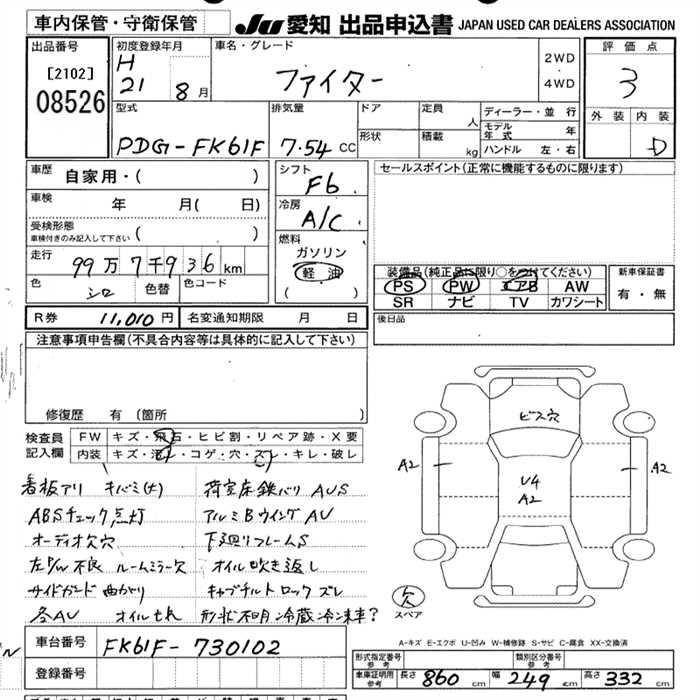 車内保管・守衛保管 JU 愛知 出品申込書 JAPAN USED CAR DEALERS ASSOCIATION
出品番号 初度登録年月 車名・グレード 評価点
[2102] H 2WD
08526 21 8月 ファイター 4WD 3
型式 排気量 ドア 定員 人 ディーラー・並行 外装 内装
モデル年式 年
PDG-FK61F 7.54 CC 形状 積載 kg ハンドル 左・右 D
車歴 自家用・( ) シフト F6 セールスポイント(正常に機能するものに限ります)
車検 年 月( 日) 冷房 A/C
受検形態 車検付きのみ記入して下さい ( )
燃料 ガソリン
走行 99万7千936km 軽油 装備品(純正品に限り○をつけてください) 新車保証書
色 シロ 色替 色コード ( ) PS PW エアB AW 有・無
SR ナビ TV カワシート
R券 11,010円 名変通知期限 月 日 後日品
注意事項申告欄(不具合内容等は具体的に記入して下さい)
修復歴 有 (箇所
検査員 FW キズ・飛石・ヒビ割・リペア跡・X要
記入欄 内装 キズ・汚・コゲ・穴・スレ・キレ・破レ
ビス穴
A2 U4 A2
A2
看板アリ キバミ(大) 荷室床鉄バリ AUS
ABSチェック点灯 アルミBウイング AU
オーディオ欠穴 下廻りフレームS
左P/W不良 ルームミラー欠 オイル吹き返し
サイドガード曲がり キャブチルト ロック ズレ
各AU オイルもれ 形状不明 冷蔵冷凍車?
欠
スペア
A-キズ E-エクボ U-凹み W-補修跡 S-サビ C-腐食 XX-交換済
車台番号 FK61F-730102
登録番号
形式指定番号 参考 類別区分番号 参考
車庫証明用 参考 長さ 860 cm 幅 249 cm 高さ 332 cm